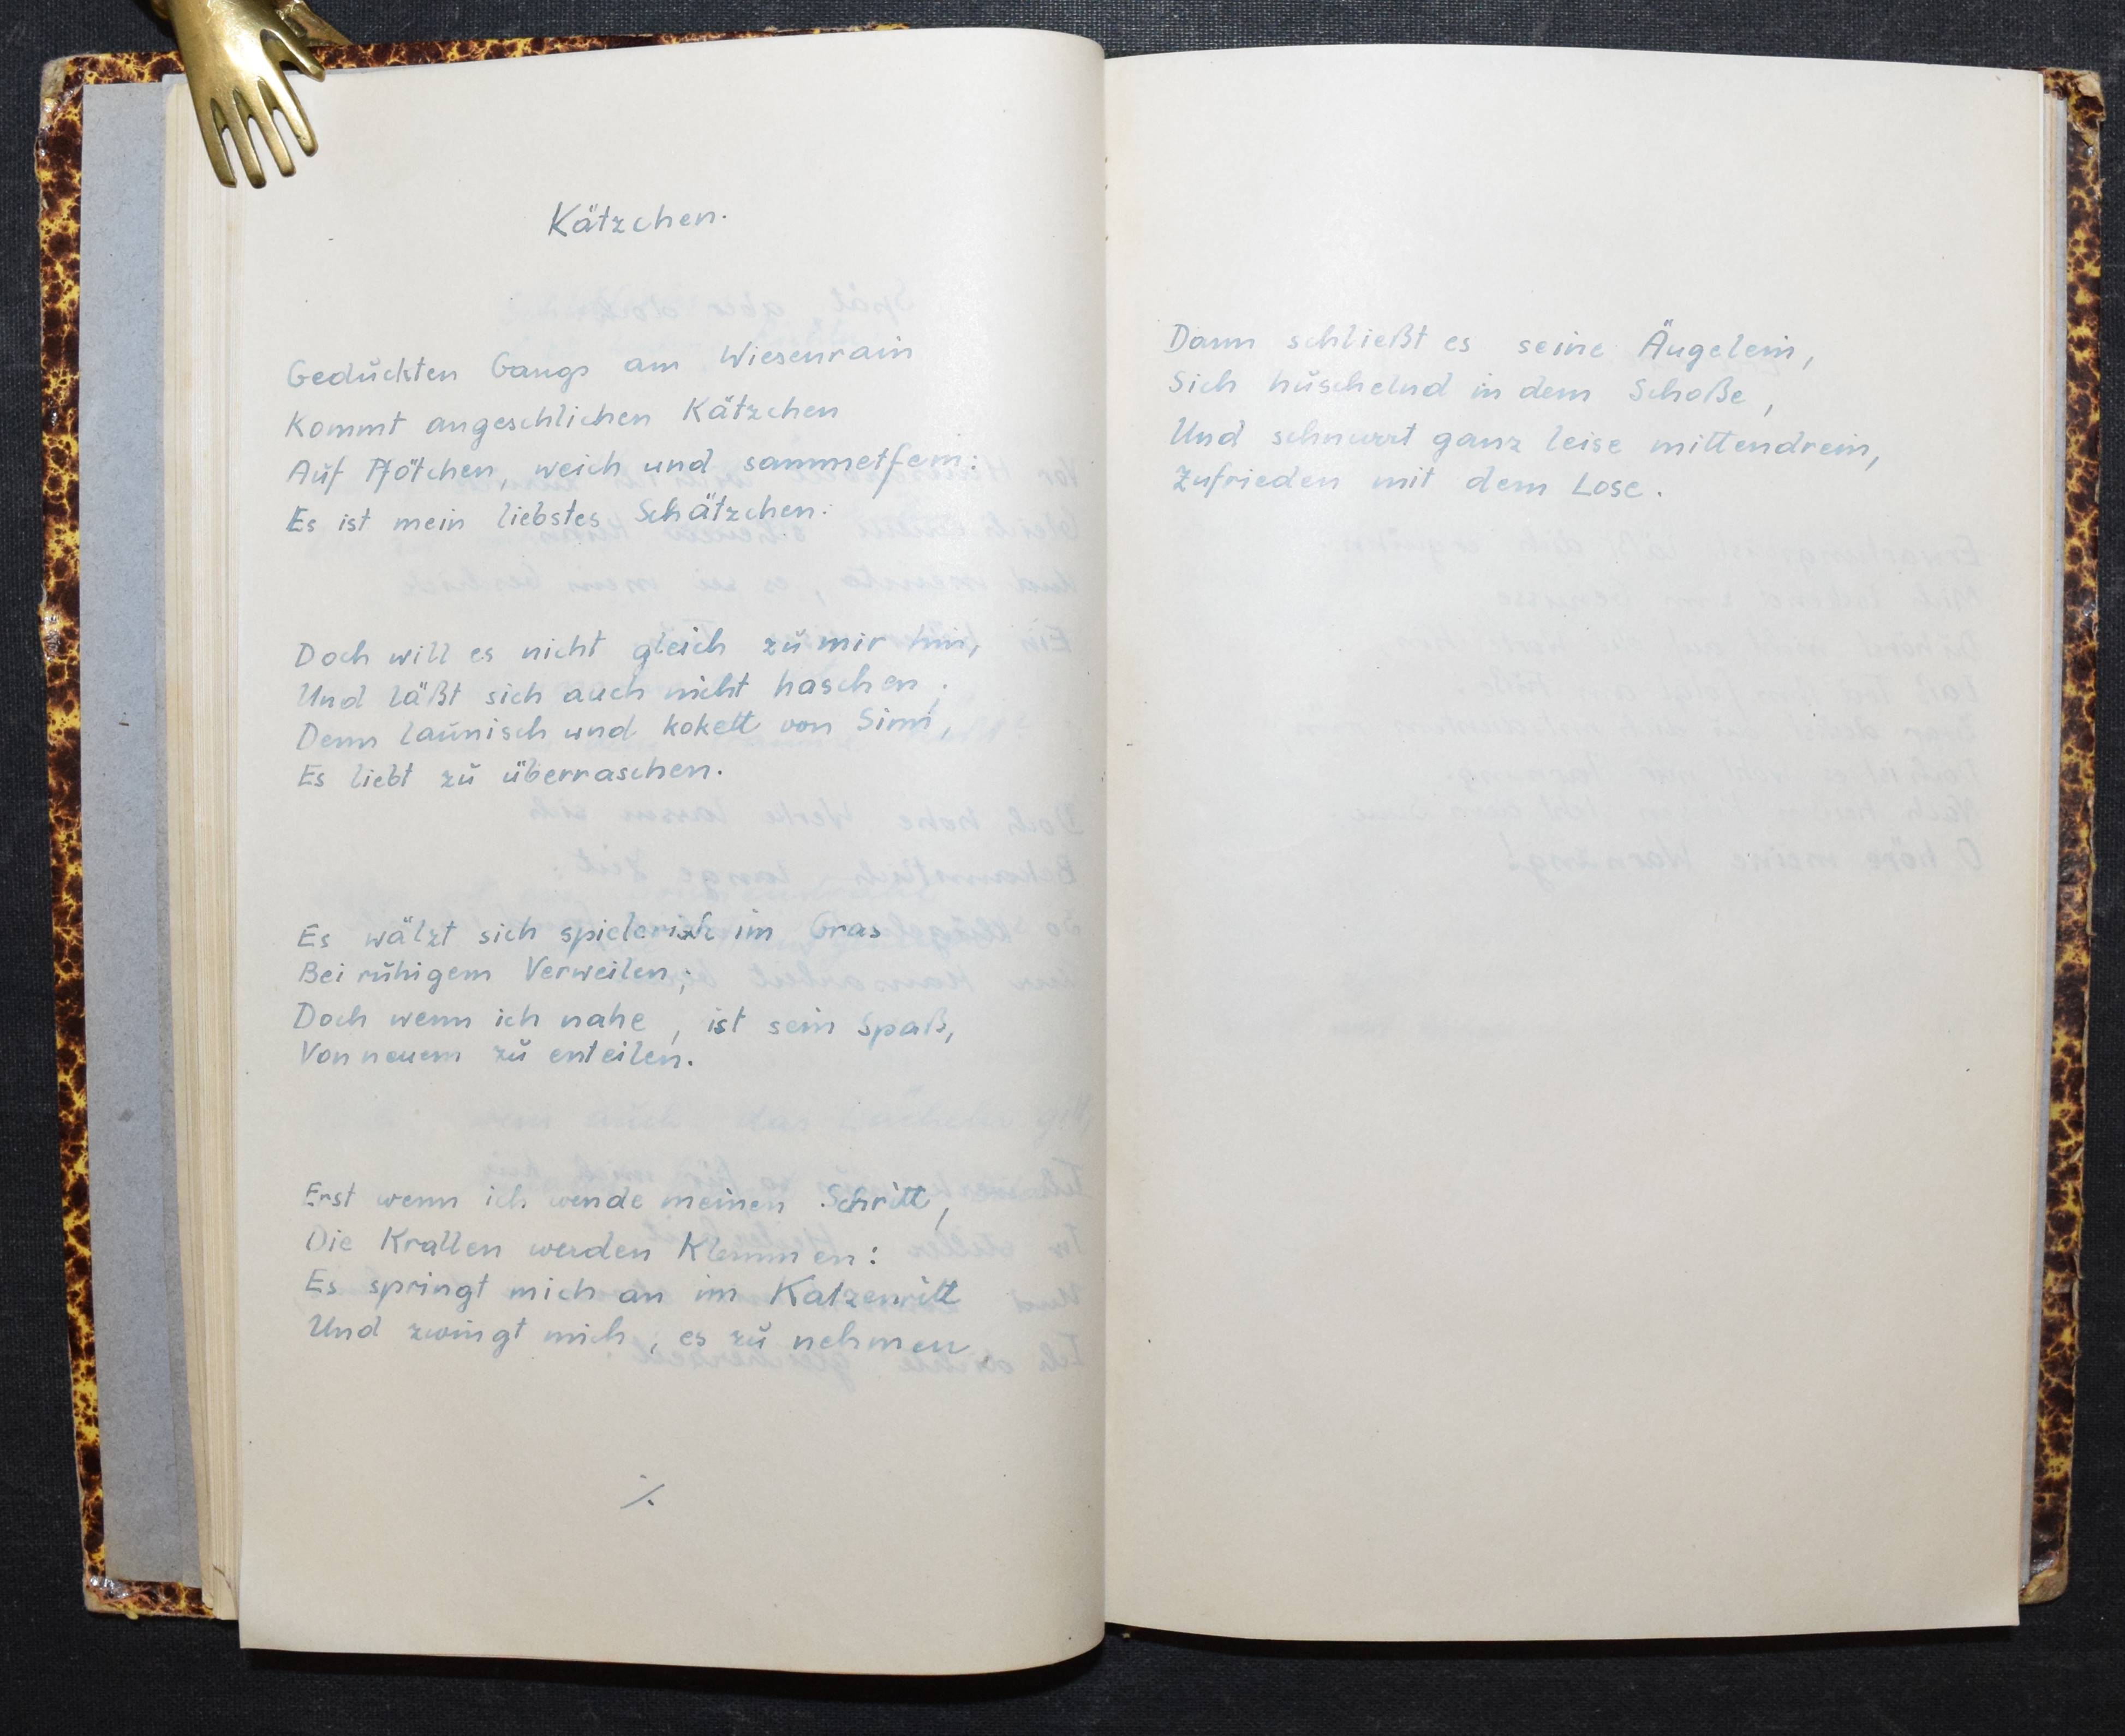 Kätzchen.
Geduckten Gangs am Wiesenrain
Kommt angeschlichen Kätzchen
Auf Pfötchen, weich und sammetfein:
Es ist mein liebstes Schätzchen.
Doch will es nicht gleich zu mir hin,
Und läßt sich auch nicht haschen;
Denn launisch und kokett von Sinn,
Es liebt zu überraschen.
Es wälzt sich spielerisch im Gras
Bei ruhigem Verweilen;
Doch wenn ich nahe, ist sein Spaß,
Von neuem zu enteilen.
Erst wenn ich wende meinen Schritt,
Die Krallen werden Klemmen:
Es springt mich an im Katzenritt
Und zwingt mich, es zu nehmen.
./.
Dann schließt es seine Äugelein,
Sich huschelnd in dem Schoße,
Und schnurrt ganz leise mittendrein,
Zufrieden mit dem Lose.